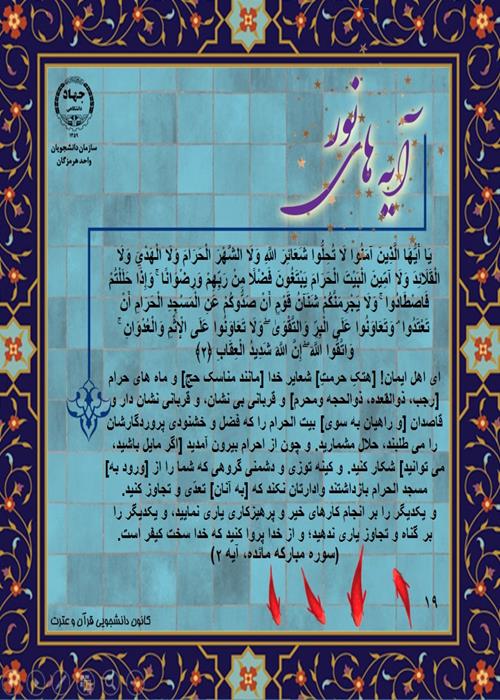 جهاد
دانشگاهی
۱۳۵۹
سازمان دانشجویان
واحد هرمزگان
آیه های نور
يَا أَيُّهَا الَّذِينَ آمَنُوا لَا تُحِلُّوا شَعَائِرَ اللَّهِ وَلَا الشَّهْرَ الْحَرَامَ وَلَا الْهَدْيَ وَلَا
الْقَلَائِدَ وَلَا آمِّينَ الْبَيْتَ الْحَرَامَ يَبْتَغُونَ فَضْلًا مِنْ رَبِّهِمْ وَرِضْوَانًا ۚ وَإِذَا حَلَلْتُمْ
فَاصْطَادُوا ۚ وَلَا يَجْرِمَنَّكُمْ شَنَآنُ قَوْمٍ أَنْ صَدُّوكُمْ عَنِ الْمَسْجِدِ الْحَرَامِ أَنْ
تَعْتَدُوا ۘ وَتَعَاوَنُوا عَلَى الْبِرِّ وَالتَّقْوَىٰ ۖ وَلَا تَعَاوَنُوا عَلَى الْإِثْمِ وَالْعُدْوَانِ ۚ
وَاتَّقُوا اللَّهَ ۖ إِنَّ اللَّهَ شَدِيدُ الْعِقَابِ ﴿٢﴾
ای اهل ایمان! [هتک حرمتِ] شعایر خدا [مانند مناسک حج] و ماه های حرام
[رجب، ذوالقعده، ذوالحجه ومحرم] و قربانی بی نشان، و قربانی نشان دار و
قاصدان [و راهیان به سوی] بیت الحرام را که فضل و خشنودی پروردگارشان
را می طلبند، حلال مشمارید. و چون از احرام بیرون آمدید [اگر مایل باشید،
می توانید] شکار کنید. و کینه توزی و دشمنی گروهی که شما را از [ورود به]
مسجد الحرام بازداشتند وادارتان نکند که [به آنان] تعدّی و تجاوز کنید.
و یکدیگر را بر انجام کارهای خیر و پرهیزکاری یاری نمایید، و یکدیگر را
بر گناه و تجاوز یاری ندهید؛ و از خدا پروا کنید که خدا سخت کیفر است.
(سوره مبارکه مائده، آیه ۲)
۱۹
کانون دانشجویی قرآن و عترت